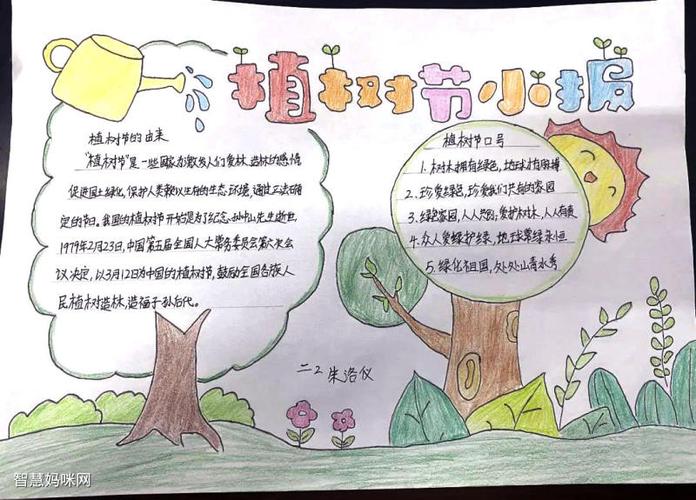 植树节小报
植树节的由来
"植树节"是一些国家为激发人们爱林、造林的感情
促进国土绿化,保护人类赖以生存的生态环境,通过立法确
定的节日。我国的植树节开始是为了纪念孙中山先生逝世,
1979年2月23日,中国第五届全国人大常务委员会第六次会
议决定,以3月12日为中国的植树节,鼓励全国各族人
民植树造林,造福子孙后代。
植树节口号
1.树木拥有绿色,地球才有脉搏
2.珍爱绿色,珍爱我们共有的家园
3.绿色家园,人人共创,爱护树木,人人有责
4.众人爱绿护绿,地球常绿永恒
5.绿化祖国,处处山青水秀
二2 朱洛仪
智慧妈咪网